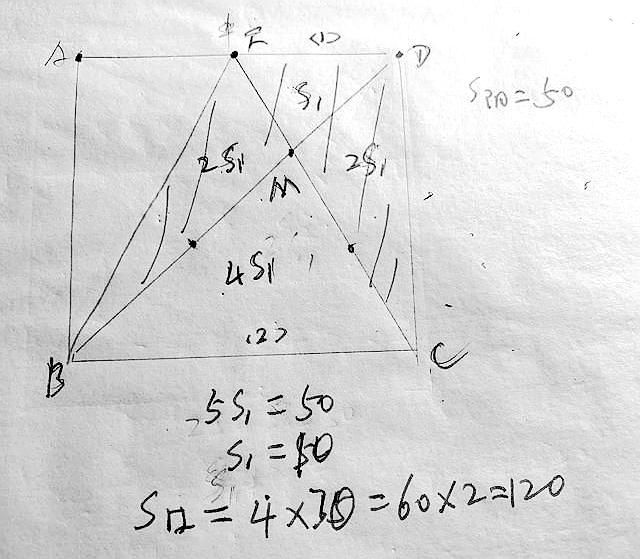 A E <1> D
S阴=50
S₁
2S₁ 2S₁
M
4S₁
<2>
B C
5S₁=50
S₁=10
S□=4×30=60×2=120